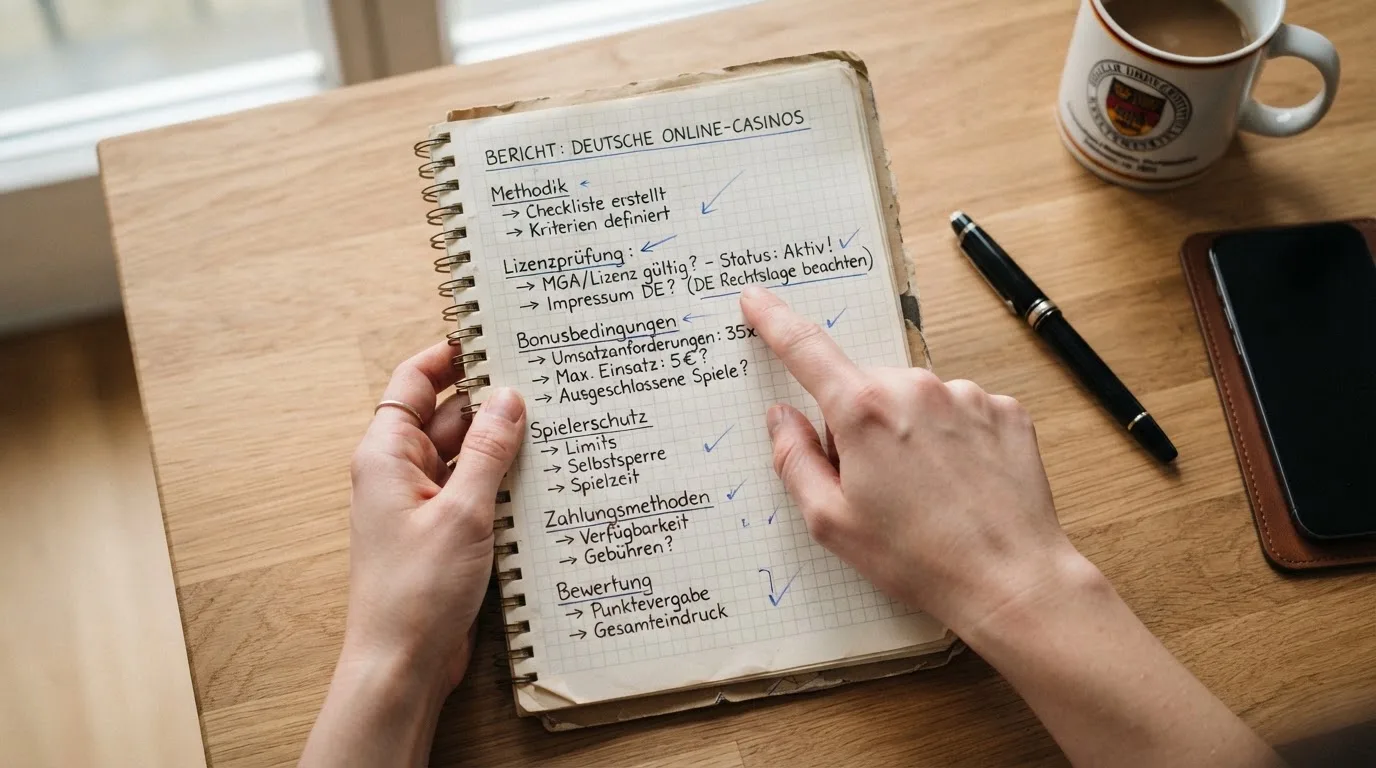 BERICHT: DEUTSCHE ONLINE-CASINOS
Methodik
→ Checkliste erstellt
→ Kriterien definiert
Lizenzprüfung:
→ MGA/Lizenz gültig? – Status: Aktiv!
→ Impressum DE? (DE Rechtslage beachten)
Bonusbedingungen
→ Umsatzanforderungen: 35x
→ Max. Einsatz: 5€?
→ Ausgeschlossene Spiele?
Spielerschutz
→ Limits
→ Selbstsperre
→ Spielzeit
Zahlungsmethoden
→ Verfügbarkeit
→ Gebühren?
Bewertung
→ Punktevergabe
→ Gesamteindruck